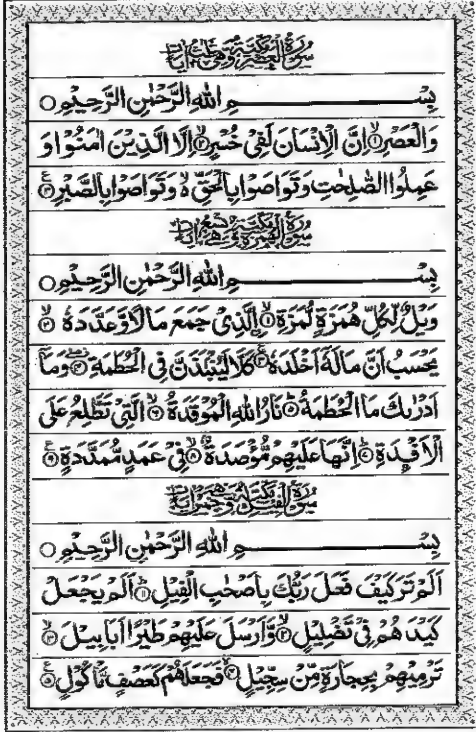 سُوْرَةُ الْعَصْرِ مَكِّيَّةٌ وَّهِيَ ثَلٰثُ اٰيَاتٍ
بِسْــــــــمِ اللهِ الرَّحْمٰنِ الرَّحِيْمِ ○
وَالْعَصْرِ ۙ﴿۱﴾ اِنَّ الْاِنْسَانَ لَفِيْ خُسْرٍ ۙ﴿۲﴾ اِلَّا الَّذِيْنَ اٰمَنُوْا وَ
عَمِلُوا الصّٰلِحٰتِ وَتَوَاصَوْا بِالْحَقِّ ۙ وَتَوَاصَوْا بِالصَّبْرِ ﴿۳﴾
سُوْرَةُ الْهُمَزَةِ مَكِّيَّةٌ وَّهِيَ تِسْعُ اٰيَاتٍ
بِسْــــــــمِ اللهِ الرَّحْمٰنِ الرَّحِيْمِ ○
وَيْلٌ لِّكُلِّ هُمَزَةٍ لُّمَزَةٍ ۙ﴿۱﴾ اِلَّذِيْ جَمَعَ مَالًا وَّعَدَّدَهٗ ۙ﴿۲﴾
يَحْسَبُ اَنَّ مَالَهٗۤ اَخْلَدَهٗ ۚ﴿۳﴾ كَلَّا لَيُنْۢبَذَنَّ فِي الْحُطَمَةِ ۖ﴿۴﴾ وَمَاۤ
اَدْرٰىكَ مَا الْحُطَمَةُ ؕ﴿۵﴾ نَارُ اللهِ الْمُوْقَدَةُ ۙ﴿۶﴾ الَّتِيْ تَطَّلِعُ عَلَى
الْاَفْـِٕدَةِ ؕ﴿۷﴾ اِنَّهَا عَلَيْهِمْ مُّؤْصَدَةٌ ۙ﴿۸﴾ فِيْ عَمَدٍ مُّمَدَّدَةٍ ﴿۹﴾
سُوْرَةُ الْفِيْلِ مَكِّيَّةٌ وَّهِيَ خَمْسُ اٰيَاتٍ
بِسْــــــــمِ اللهِ الرَّحْمٰنِ الرَّحِيْمِ ○
اَلَمْ تَرَ كَيْفَ فَعَلَ رَبُّكَ بِاَصْحٰبِ الْفِيْلِ ؕ﴿۱﴾ اَلَمْ يَجْعَلْ
كَيْدَهُمْ فِيْ تَضْلِيْلٍ ۙ﴿۲﴾ وَّاَرْسَلَ عَلَيْهِمْ طَيْرًا اَبَابِيْلَ ۙ﴿۳﴾
تَرْمِيْهِمْ بِحِجَارَةٍ مِّنْ سِجِّيْلٍ ۙ﴿۴﴾ فَجَعَلَهُمْ كَعَصْفٍ مَّاْكُوْلٍ ﴿۵﴾